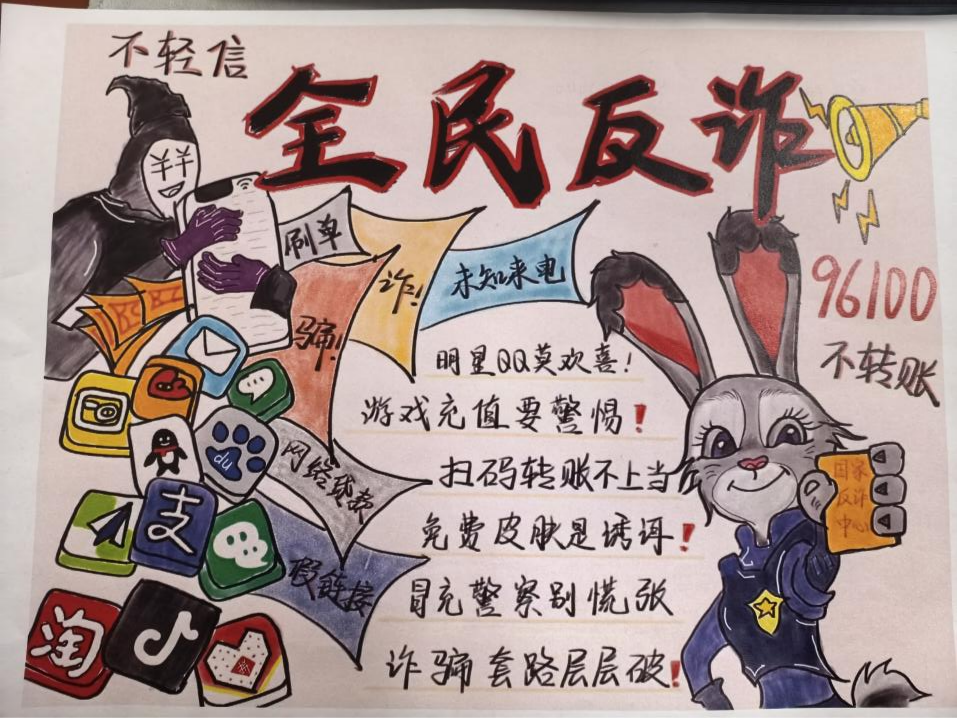 不轻信
全民反诈
刷单
诈!
未知来电
骗!
96100
不转账
明星QQ莫欢喜!
游戏充值要警惕!
扫码转账不上当
免费皮肤是诱谓!
冒充警察别慌张
诈骗套路层层破!
网络
假链接
国家
反诈
中心
du
支
淘